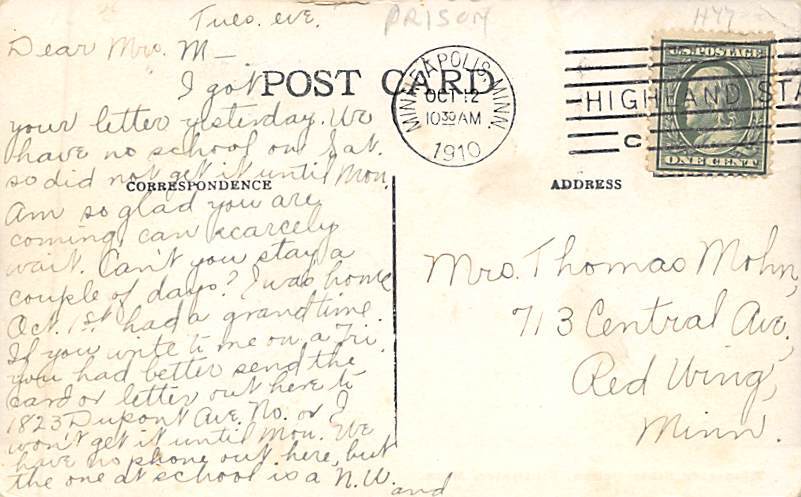 Tues. eve.
PRISON
H47
Dear Mrs. M—
I got
POST CARD
MINNEAPOLIS, MINN.
OCT 12
10 30 AM
1910
HIGHLAND STA
C
U.S. POSTAGE
ONE CENT
your letter yesterday. We
have no school on Sat.
so did not get it until Mon.
CORRESPONDENCE
ADDRESS
Am so glad you are
coming, can scarcely
wait. Can't you stay a
couple of days? I was home
Oct. 1st had a grand time.
If you write to me on a Fri.
you had better send the
card or letter out here to
1823 Dupont Ave. No. or I
won't get it until Mon. We
have no phone out here, but
the one at school is a N.W.
and
Mrs. Thomas Mohn,
713 Central Ave.,
Red Wing,
Minn.